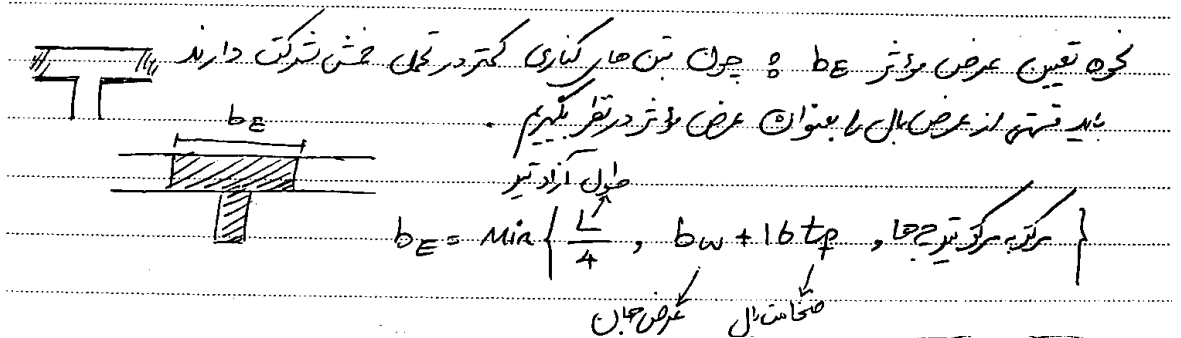 نحوه تعیین عرض مؤثر bE : چون بتن های کناری کمتر در تحمل خمش شرکت دارند
باید قسمتی از عرض بال را بعنوان عرض مؤثر در نظر بگیریم .
bE
طول آزاد تیر
bE = Min { L/4 , bw + 16 tf , مرکز به مرکز تیرچه ها }
ضخامت بال عرض جان